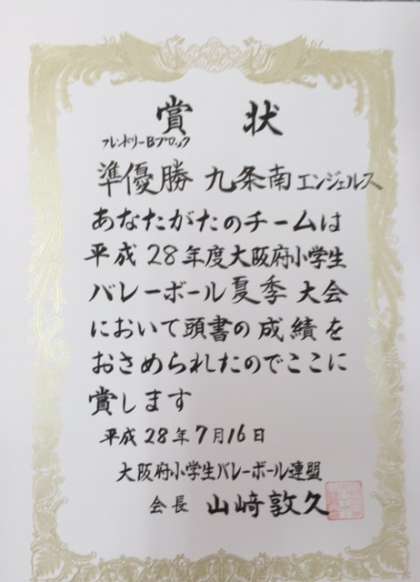 賞状
フレンドリーBブロック
準優勝 九条南エンジェルス
あなたがたのチームは
平成28年度大阪府小学生
バレーボール夏季大会
において頭書の成績を
おさめられたのでここに
賞します
平成28年7月16日
大阪府小学生バレーボール連盟
会長 山﨑敦久